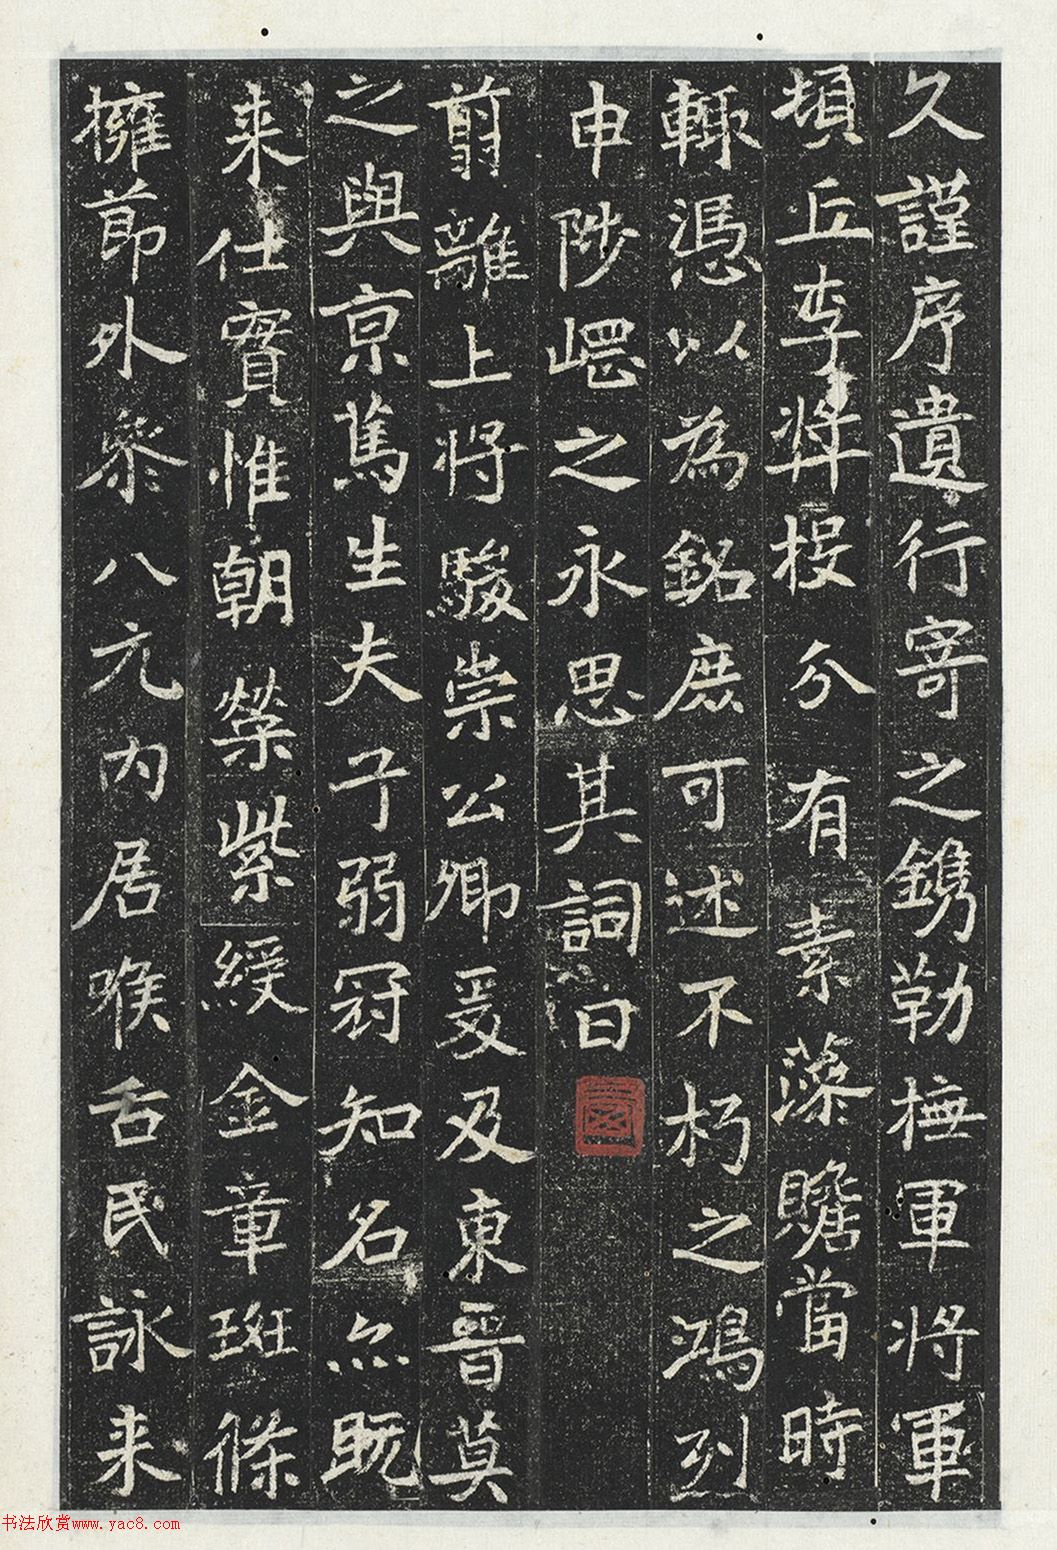 久謹序遺行寄之鐫勒撫軍將軍
頓丘李奖投分有素藻贍當時
輒憑以為銘庶可述不朽之鴻烈
申陟岵之永思其詞曰
翦離上将駿崇公卿爰及東晉莫
之與京篤生夫子弱冠知名亦既
来仕賓惟朝榮紫綬金章斑條
擁節外参八元内居喉舌民詠来
书法欣赏www.yac8.com